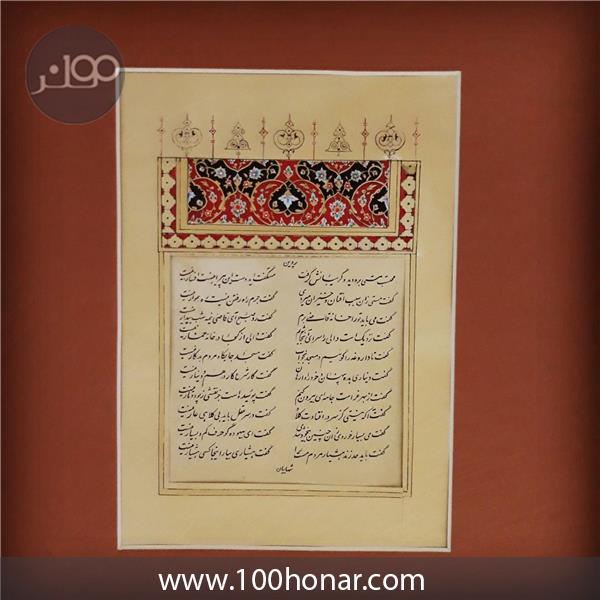 صد هنر
پروین
محتسب مستی به ره دید و گریبانش گرفت مست گفت ای دوست این پیراهن است افسار نیست
گفت مستی زان سبب افتان و خیزان میروی گفت جرم راه رفتن نیست ره هموار نیست
گفت می باید ترا تا خانه قاضی برم گفت رو صبح آی قاضی نیمه شب بیدار نیست
گفت نزدیک است والی را سرای آنجا شویم گفت والی از کجا در خانه خمار نیست
گفت تا داروغه را گوییم در مسجد بخواب گفت مسجد جایگاه مردم بدکار نیست
گفت دیناری بده پنهان و خود را وارهان گفت کار شرع کار درهم و دینار نیست
گفت از بهر غرامت جامه ات بیرون کنم گفت پوسیده است جز نقشی ز پود و تار نیست
گفت آگه نیستی کز سر در افتادت کلاه گفت در سر عقل باید بی کلاهی عار نیست
گفت می بسیار خوردی زان چنین بیخود شدی گفت ای بیهوده گو حرف کم و بسیار نیست
گفت باید حد زند هشیار مردم مست را گفت هشیاری بیار اینجا کسی هشیار نیست
www.100honar.com